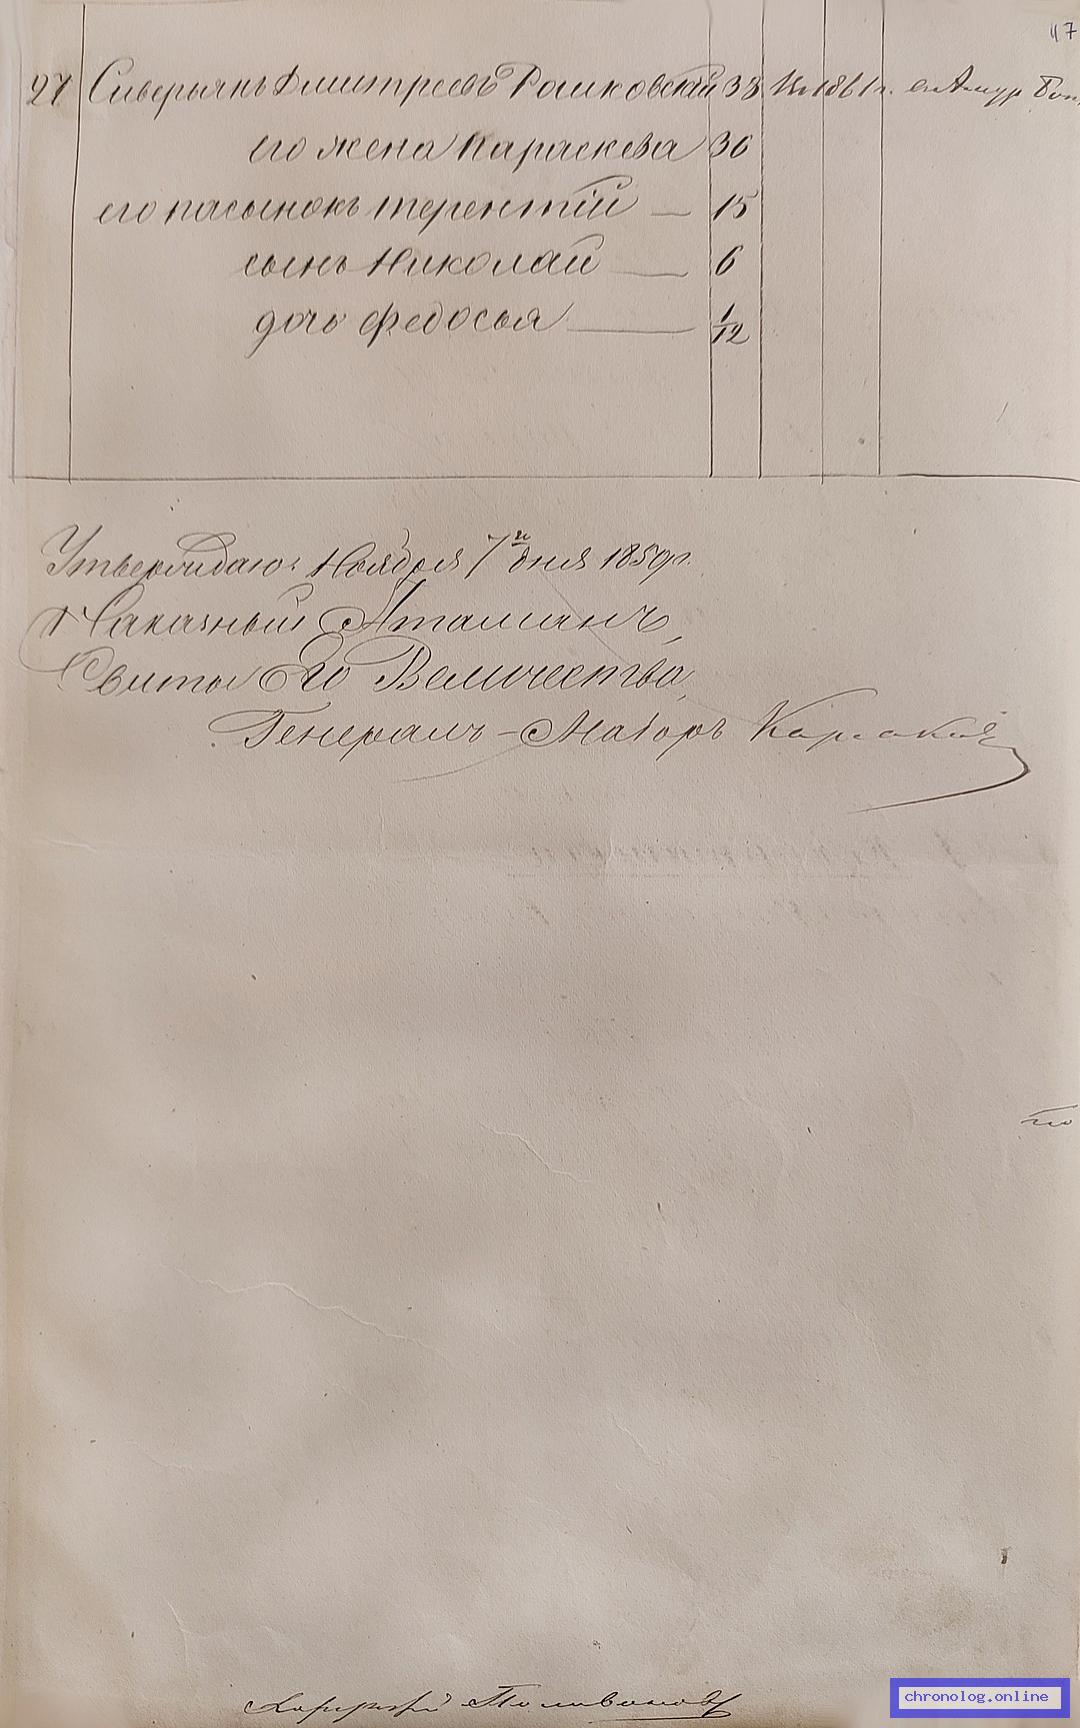 117
27 Сиверьянъ Дмитреевъ Рошковский 38 1861 г. на Амур
его жена Караскева 30
его пасынокъ Терентій — 15
сынъ Николай — 6
дочь Федосья — 1/12
Утверждаю: Ноября 7го дня 1859 г.
Наказный Атаманъ,
Свиты Его Величества,
Генералъ-Маіоръ Карсаковъ
Хорунжій Поливановъ
chronolog.online